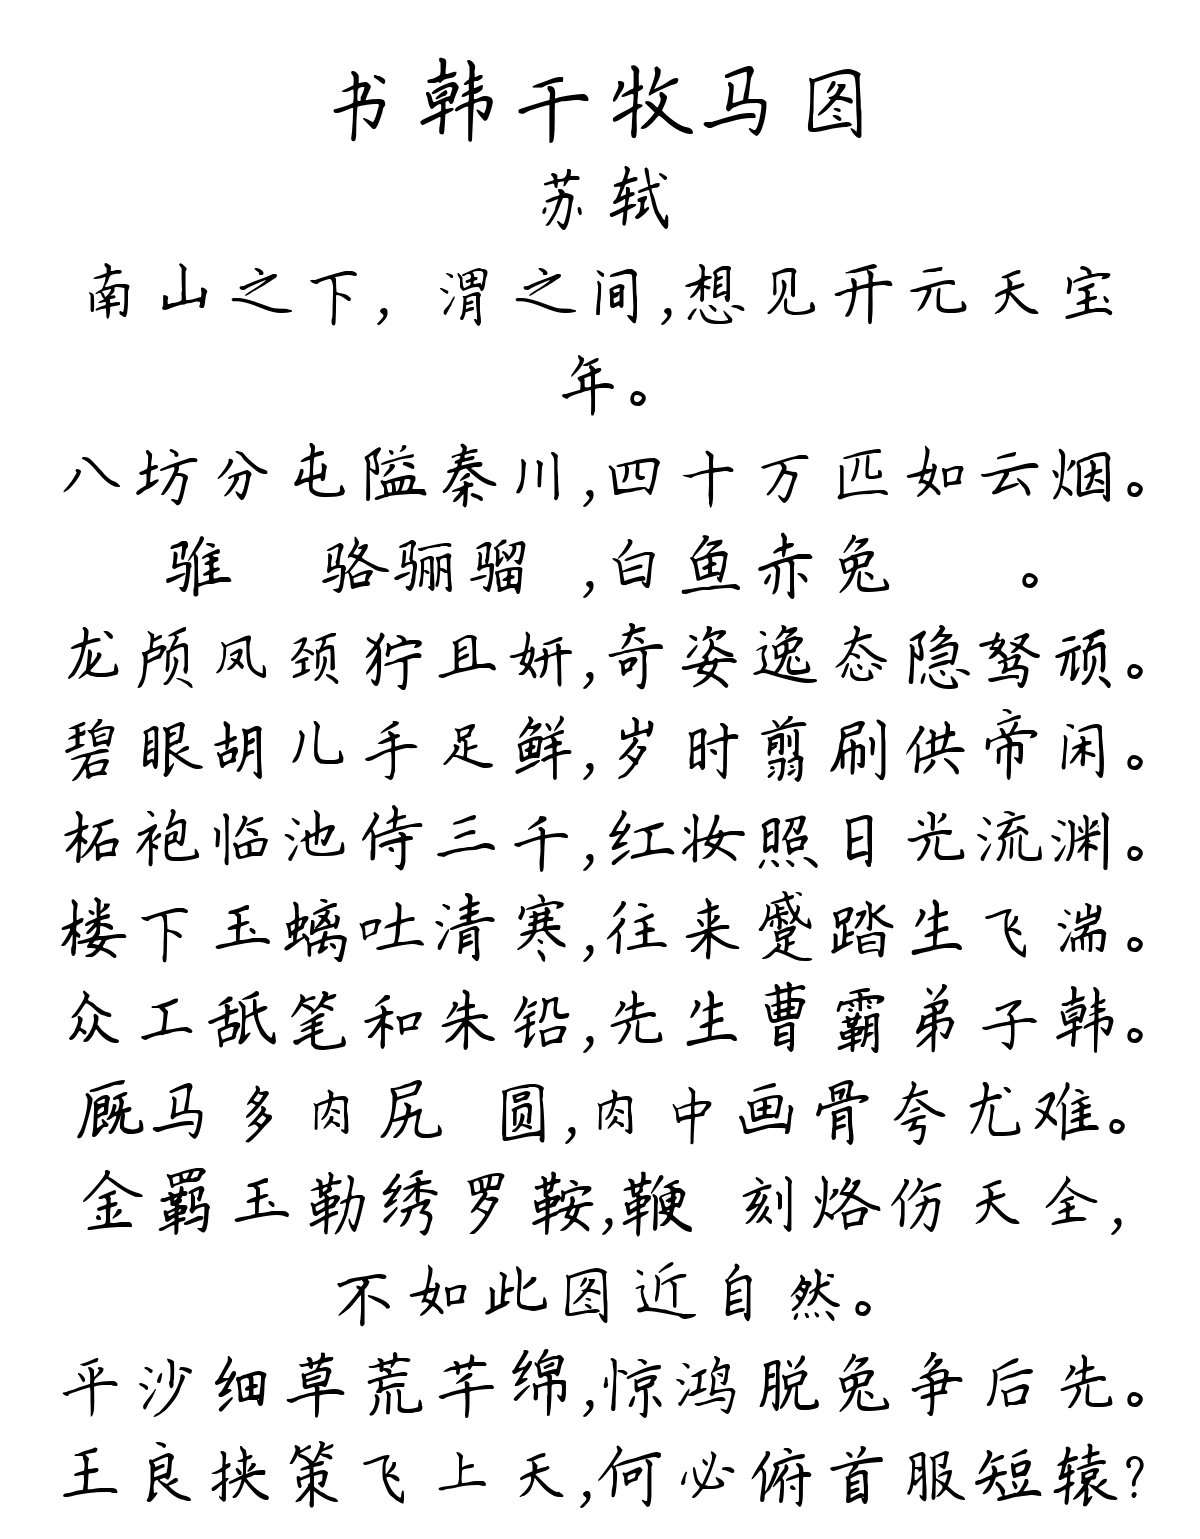 书韩干牧马图
苏轼
南山之下，渭之间,想见开元天宝
年。
八坊分屯隘秦川,四十万匹如云烟。
骓 骆骊骝 ,白鱼赤兔 。
龙颅凤颈狞且妍,奇姿逸态隐驽顽。
碧眼胡儿手足鲜,岁时翦刷供帝闲。
柘袍临池侍三千,红妆照日光流渊。
楼下玉螭吐清寒,往来蹙踏生飞湍。
众工舐笔和朱铅,先生曹霸弟子韩。
厩马多肉尻 圆,肉中画骨夸尤难。
金羁玉勒绣罗鞍,鞭 刻烙伤天全,
不如此图近自然。
平沙细草荒芊绵,惊鸿脱兔争后先。
王良挟策飞上天,何必俯首服短辕?